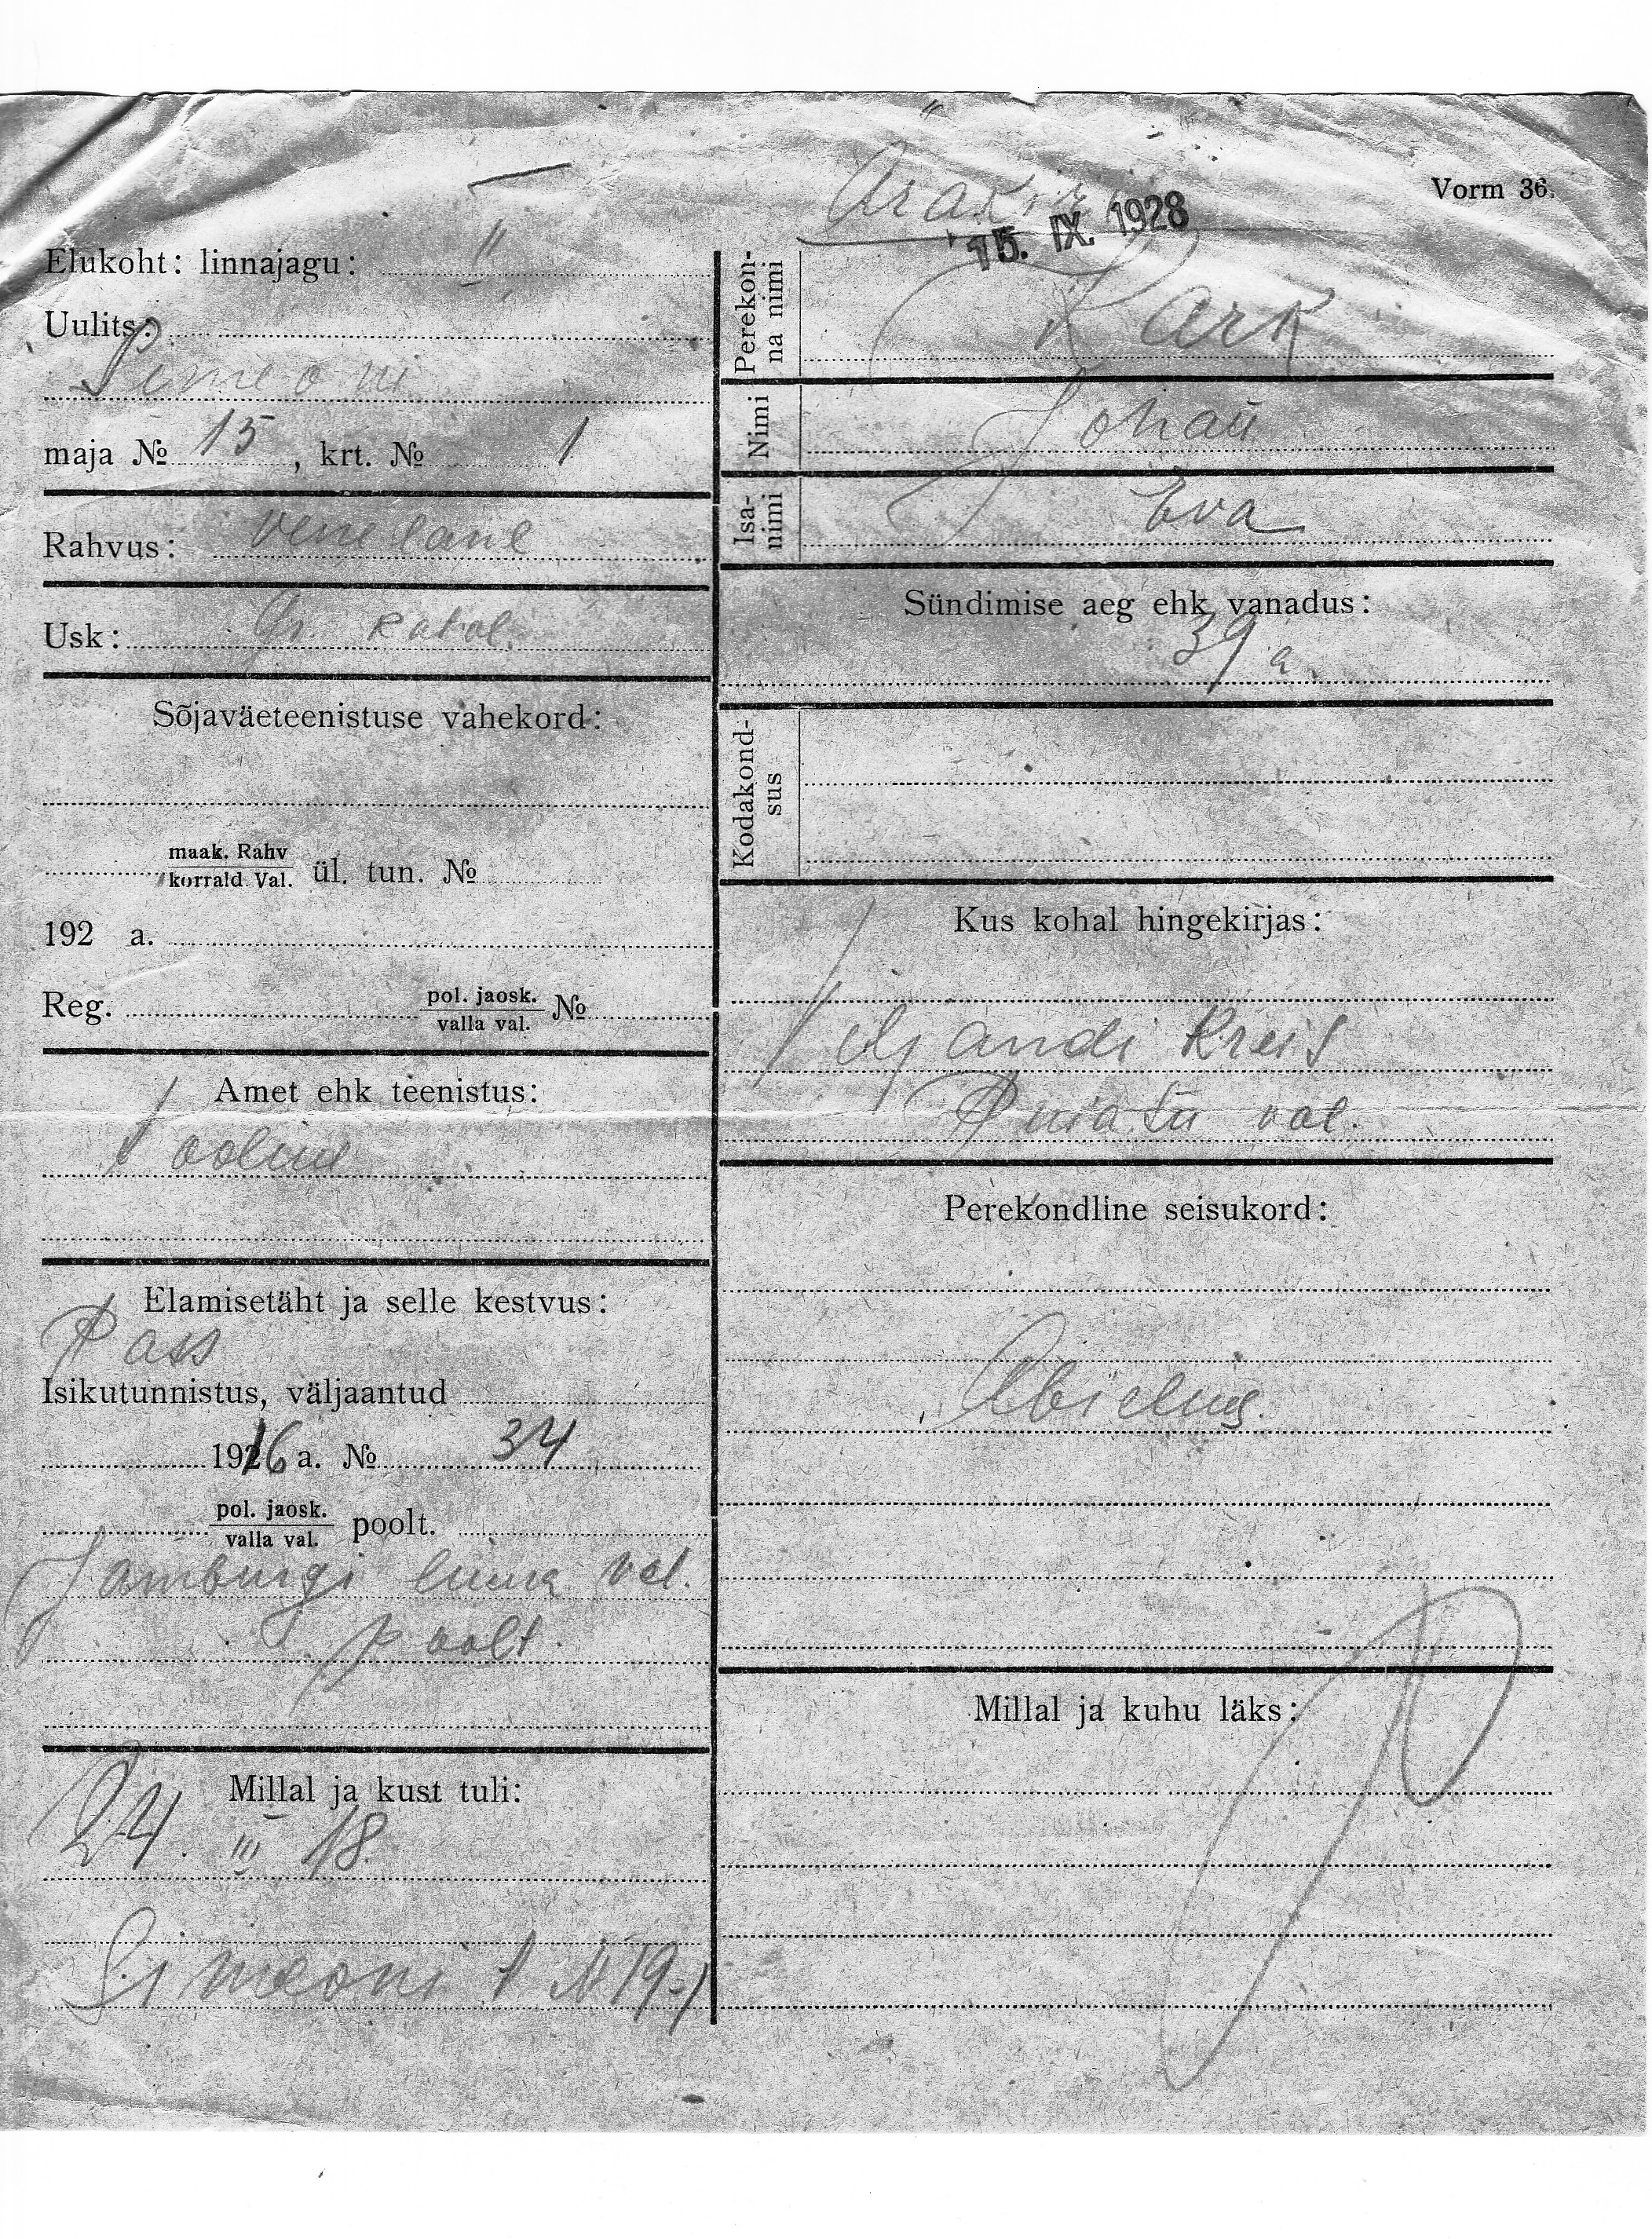 Vorm 36.
15. IX. 1928
Elukoht: linnajagu: II
Uulits:
Simeoni
maja № 15, krt. № 1
Rahvus: venelane
Usk: Gr. katol.
Sõjaväeteenistuse vahekord:
maak. Rahv
korrald. Val. ül. tun. №
192 a.
Reg. pol. jaosk.
valla val. №
Amet ehk teenistus:
Tööline
Elamisetäht ja selle kestvus:
Pass
Isikutunnistus, väljaantud
1916 a. № 34
pol. jaosk.
valla val. poolt.
Jamburgi linna val.
poolt.
Millal ja kust tuli:
24. III 18.
Simeoni t № 19-1
Perekon-
na nimi
Kark
Nimi
Johan
Isa-
nimi
Eva
Sündimise aeg ehk vanadus:
39 a.
Kodakond-
sus
Kus kohal hingekirjas:
Viljandi Kreis
val.
Perekondline seisukord:
Abielus.
Millal ja kuhu läks: